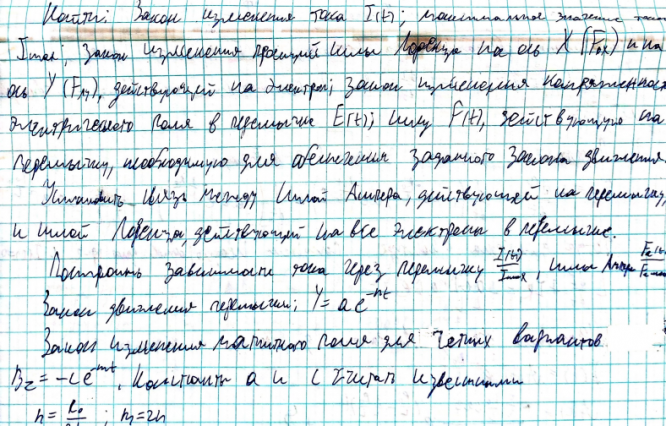 Найти: Закон изменения тока I(t); максимальное значение тока
Imax; Закон изменения проекций силы Лоренца на ось X (Fлx) и на
ось Y (Fлy), действующей на электрон; закон изменения напряженност
электрического поля в перемычке E(t); силу F(t), действующую на
перемычку, необходимую для обеспечения заданного закона движения
Установить связь между силой Ампера, действующей на перемычку,
и силой Лоренца, действующей на все электроны в перемычке.
Построить зависимости тока через перемычку I(t)/Imax, силы Ампера
Закон движения перемычки; Y = ae^-nt
Закон изменения магнитного поля для четных вариантов
Bz = -ce^-mt. Константы a и c считать известными
m=2n